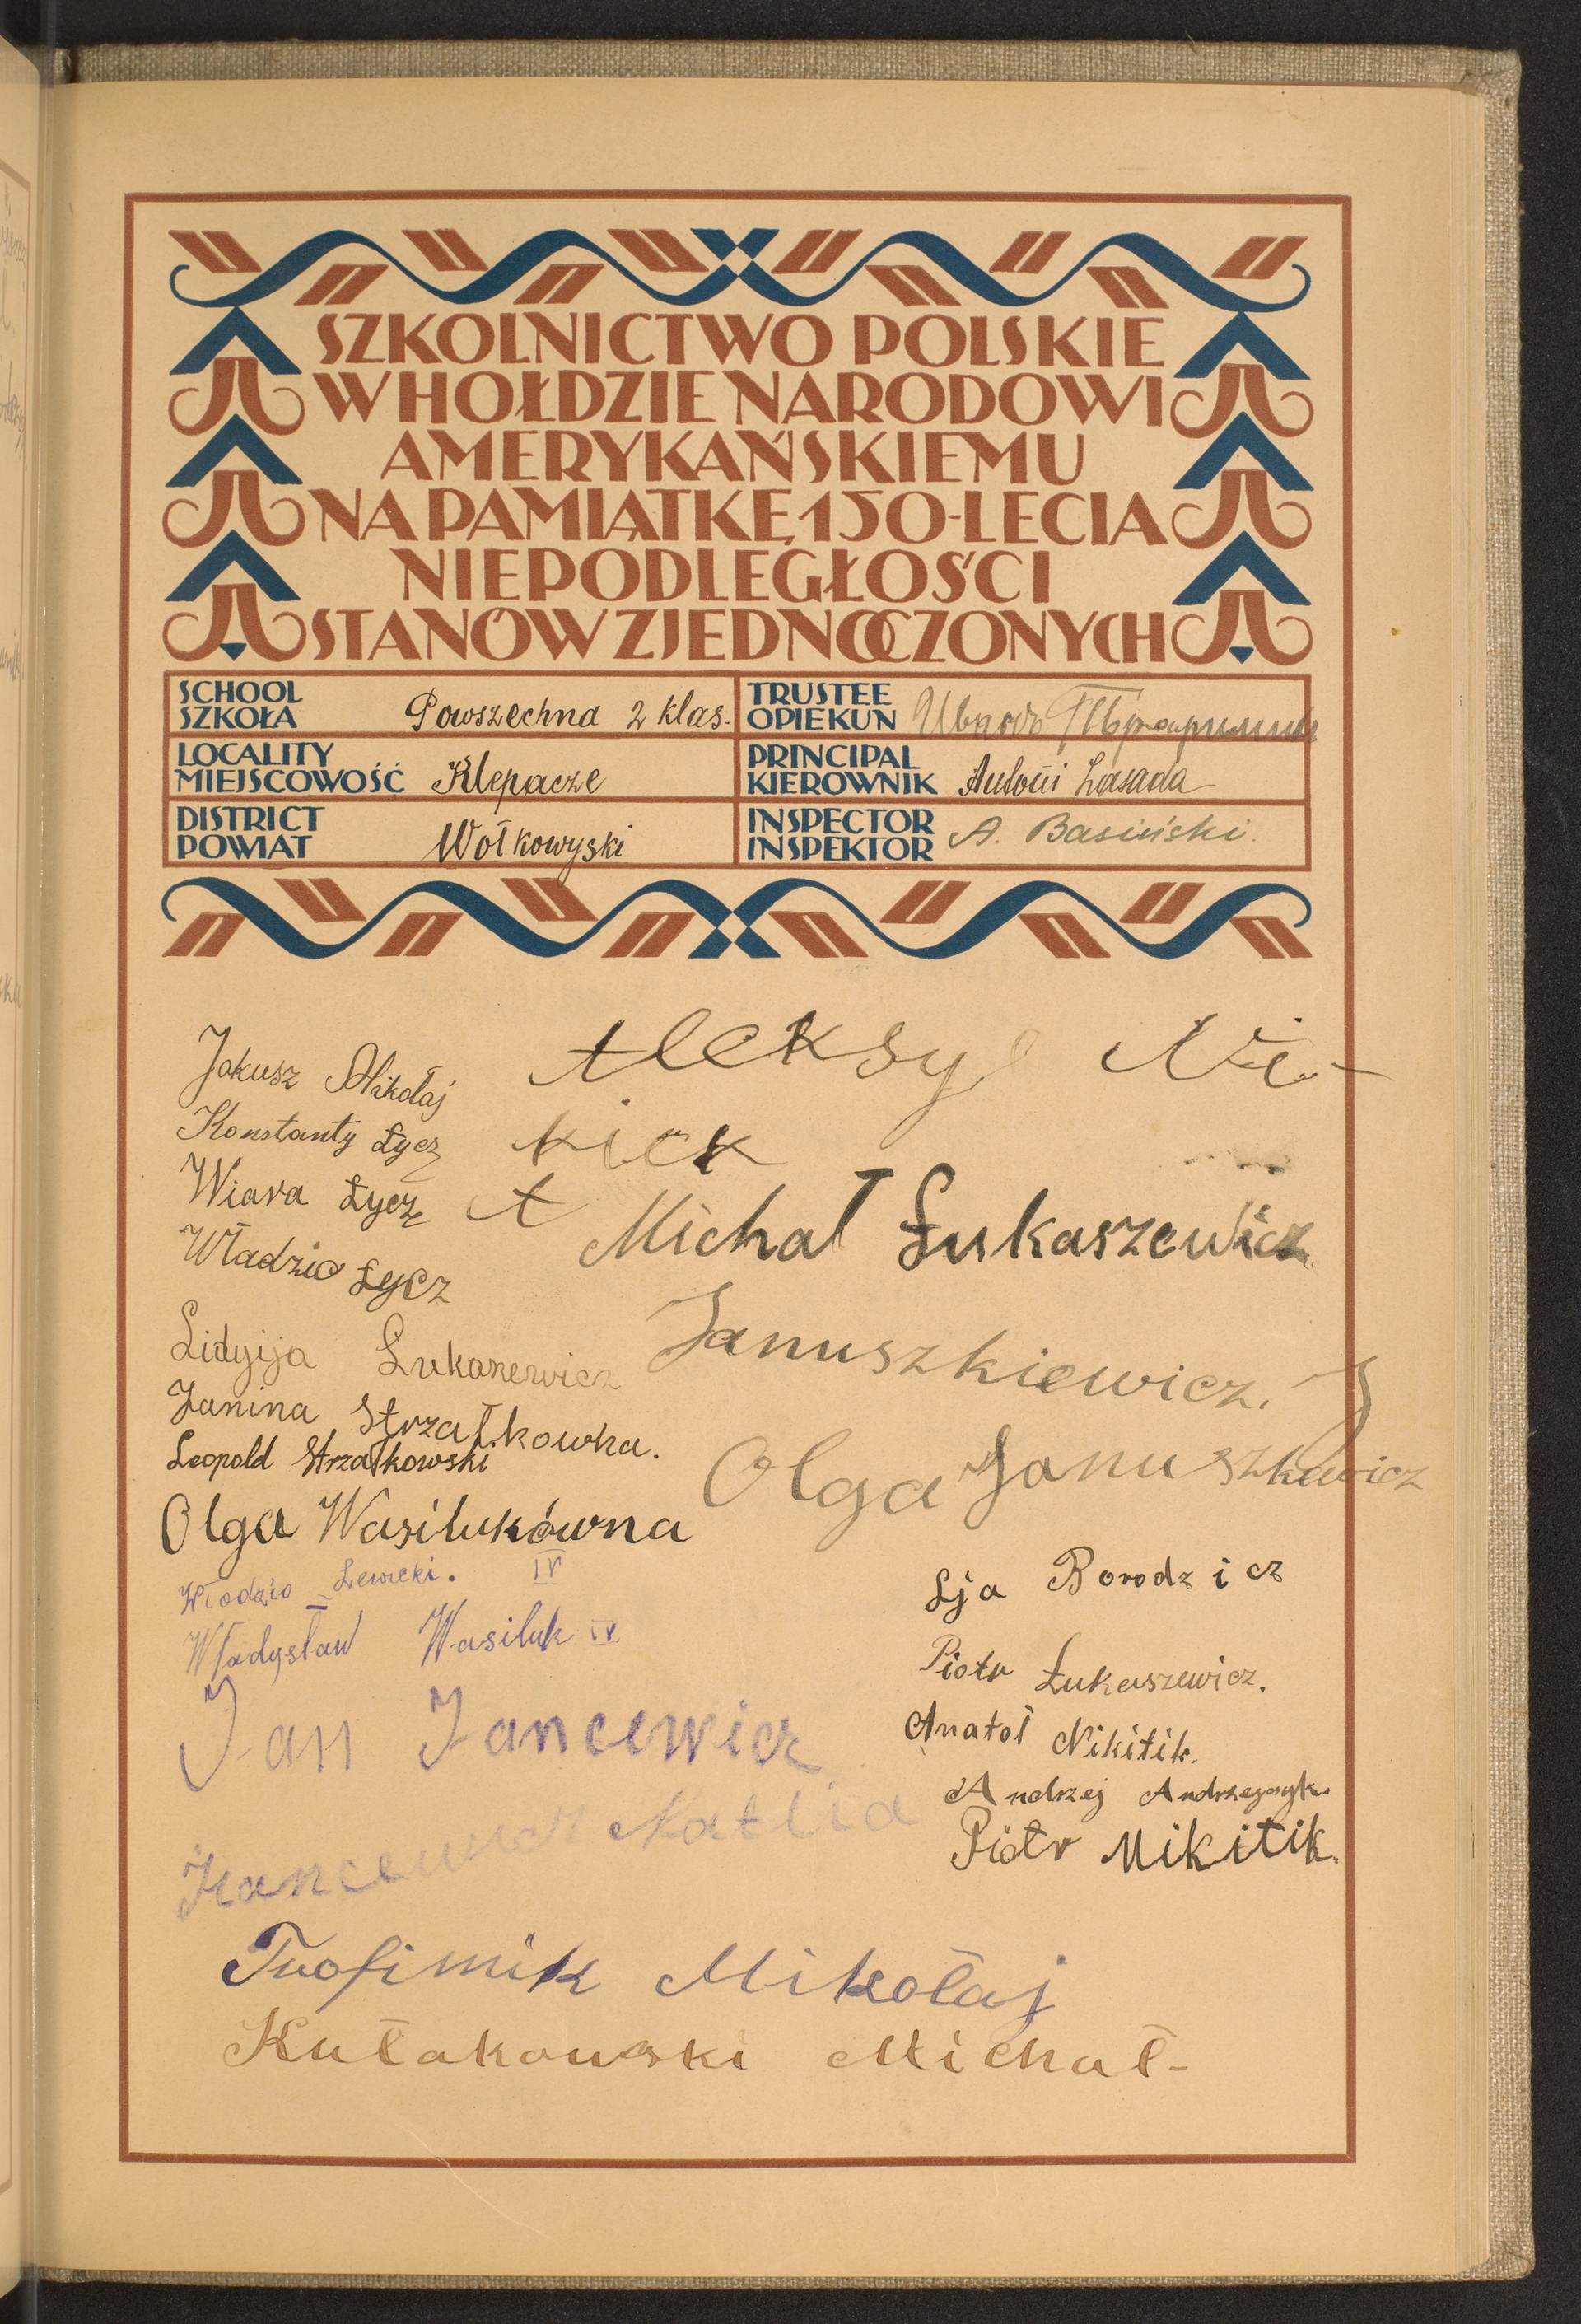 SZKOLNICTWO POLSKIE
W HOŁDZIE NARODOWI
AMERYKAŃSKIEMU
NA PAMIĄTKĘ 150-LECIA
NIEPODLEGŁOŚCI
STANÓW ZJEDNOCZONYCH
SCHOOL
SZKOŁA Powszechna 2 klas.
TRUSTEE
OPIEKUN
LOCALITY
MIEJSCOWOŚĆ Klepacze
PRINCIPAL
KIEROWNIK Antoni Lasada
DISTRICT
POWIAT Wołkowyski
INSPECTOR
INSPEKTOR A. Basiński.
Jakusz Mikołaj
Konstanty Łycz
Wiara Łycz
Władzio Łycz
Lidyija Łukaszewicz
Janina Strzałkowka.
Leopold Strzałkowski
Olga Wasilukówna
Włodzio Lewicki. IV
Władysław Wasiluk IV
Jan Jancewicz
Jancewicz Natlia
Trofimik Mikołaj
Kułakowski Michał-
Aleksy Ni-
kick
A
Michał Łukaszewicz
Januszkiewicz. J
Olga Januszkewicz
Lja Borodzicz
Piotr Łukaszewicz.
Anatol Nikitik.
Andrzej Andrzejczyk.
Piotr Mikitik.